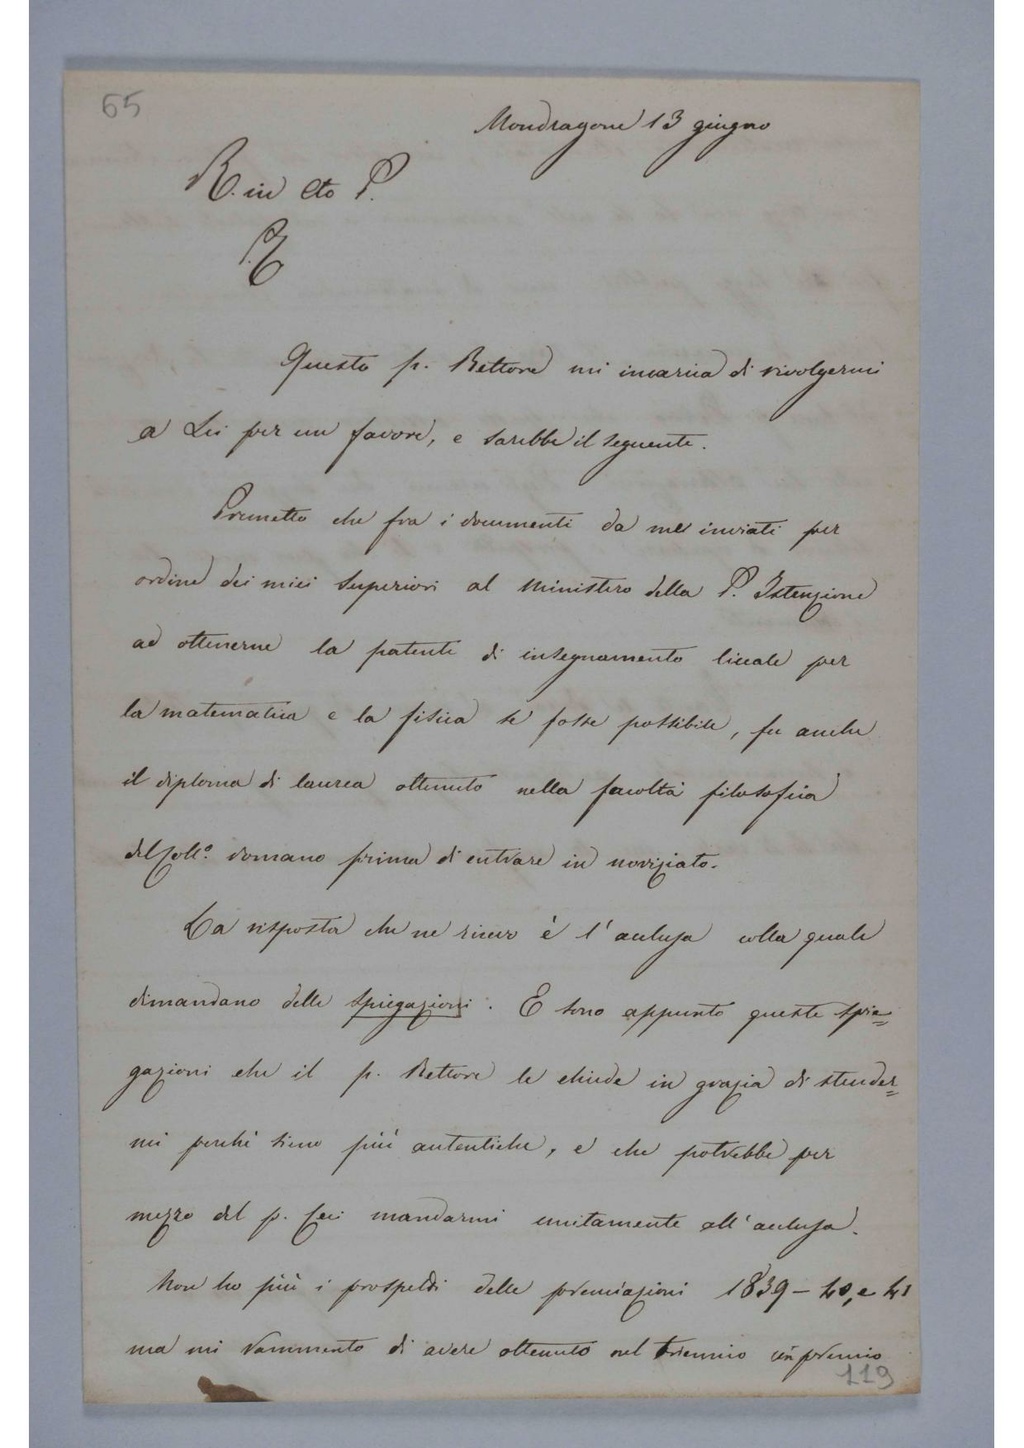 65
Mondragone 13 giugno
R. in Cto P.
P.
Questo p. Rettore mi incarica di rivolgermi
a Lei per un favore, e sarebbe il seguente.
Premetto che fra i documenti da me inviati per
ordine dei miei Superiori al Ministero della P. Istruzione
ad ottenerne la patente di insegnamento liceale per
la matematica e la fisica se fosse possibile, fu anche
il diploma di laurea ottenuto nella facoltà filosofica
del Coll.º romano prima di entrare in noviziato.
La risposta che ne ricevo è l'acclusa colla quale
dimandano delle spiegazioni. E sono appunto queste spie=
gazioni che il p. Rettore le chiede in grazia di stender=
mi perché sieno più autentiche, e che potrebbe per
mezzo del p. Ceci mandarmi unitamente all'acclusa.
Non ho più i prospetti delle premiazioni 1839-40, e 41
ma mi rammento di avere ottenuto nel triennio un premio
119